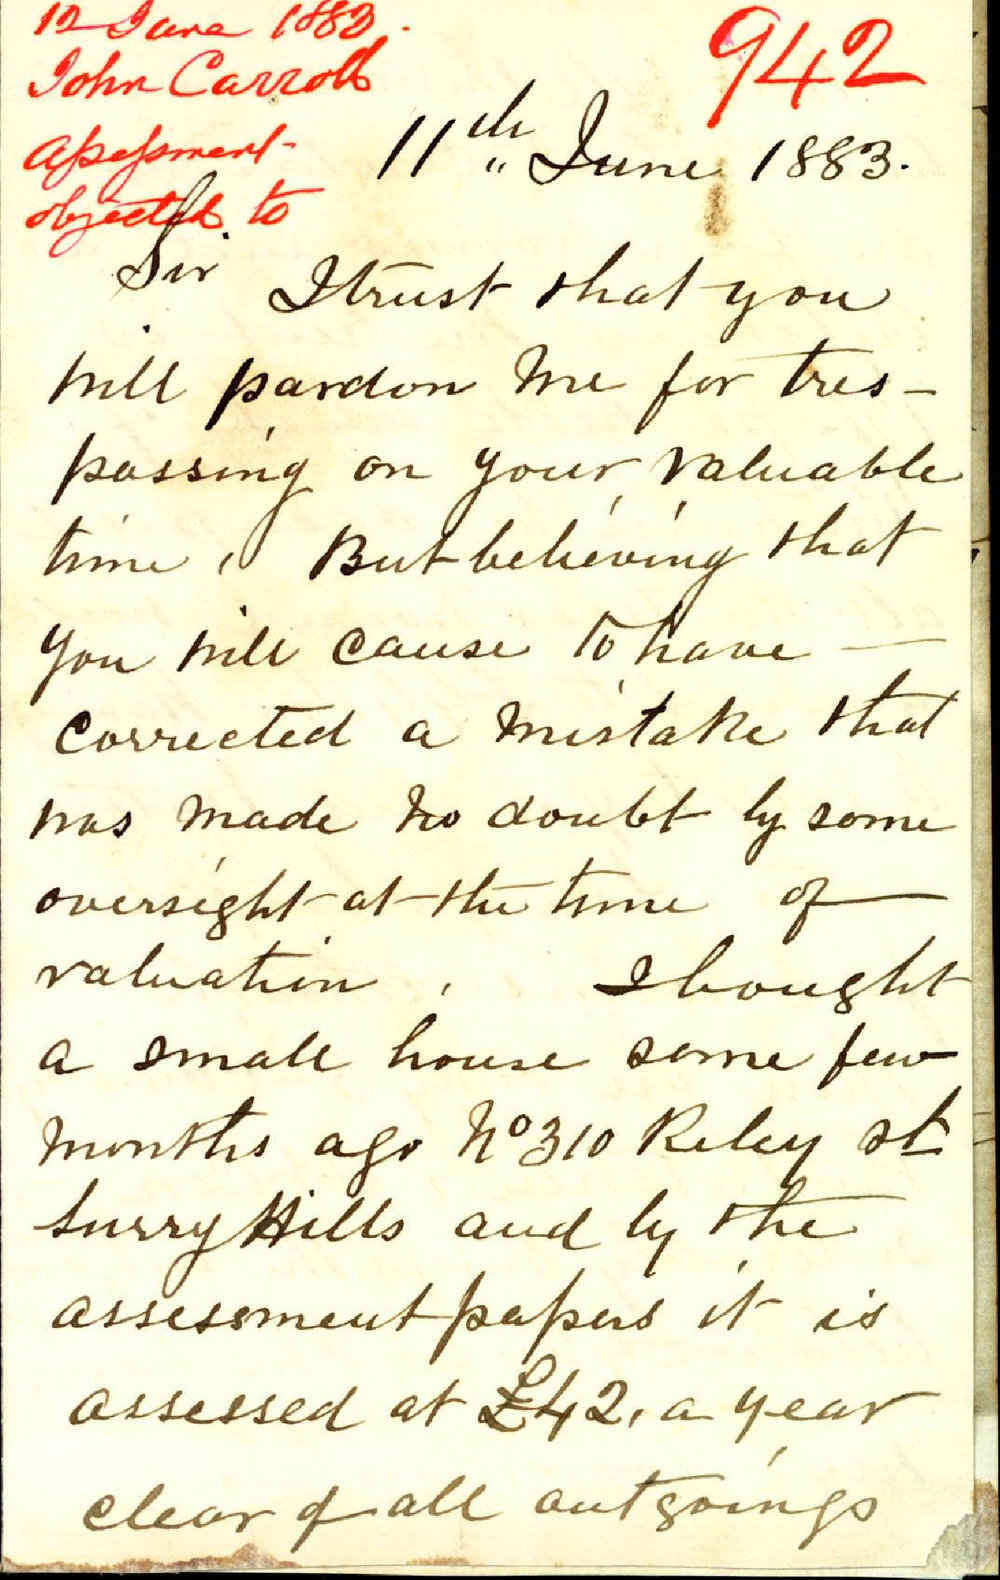 12 June 1883.
942
John Carroll
Assessment
objected to
11th June 1883.
Sir
I trust that you
will pardon me for tres-
passing on your valuable
time, But believing that
you will cause to have —
corrected a mistake that
was made no doubt by some
oversight at the time of —
valuation, I bought
a small house some few
months ago No 310 Riley st
Surry Hills and by the
assessment papers it is
assessed at £42, a year
clear of all outgoings